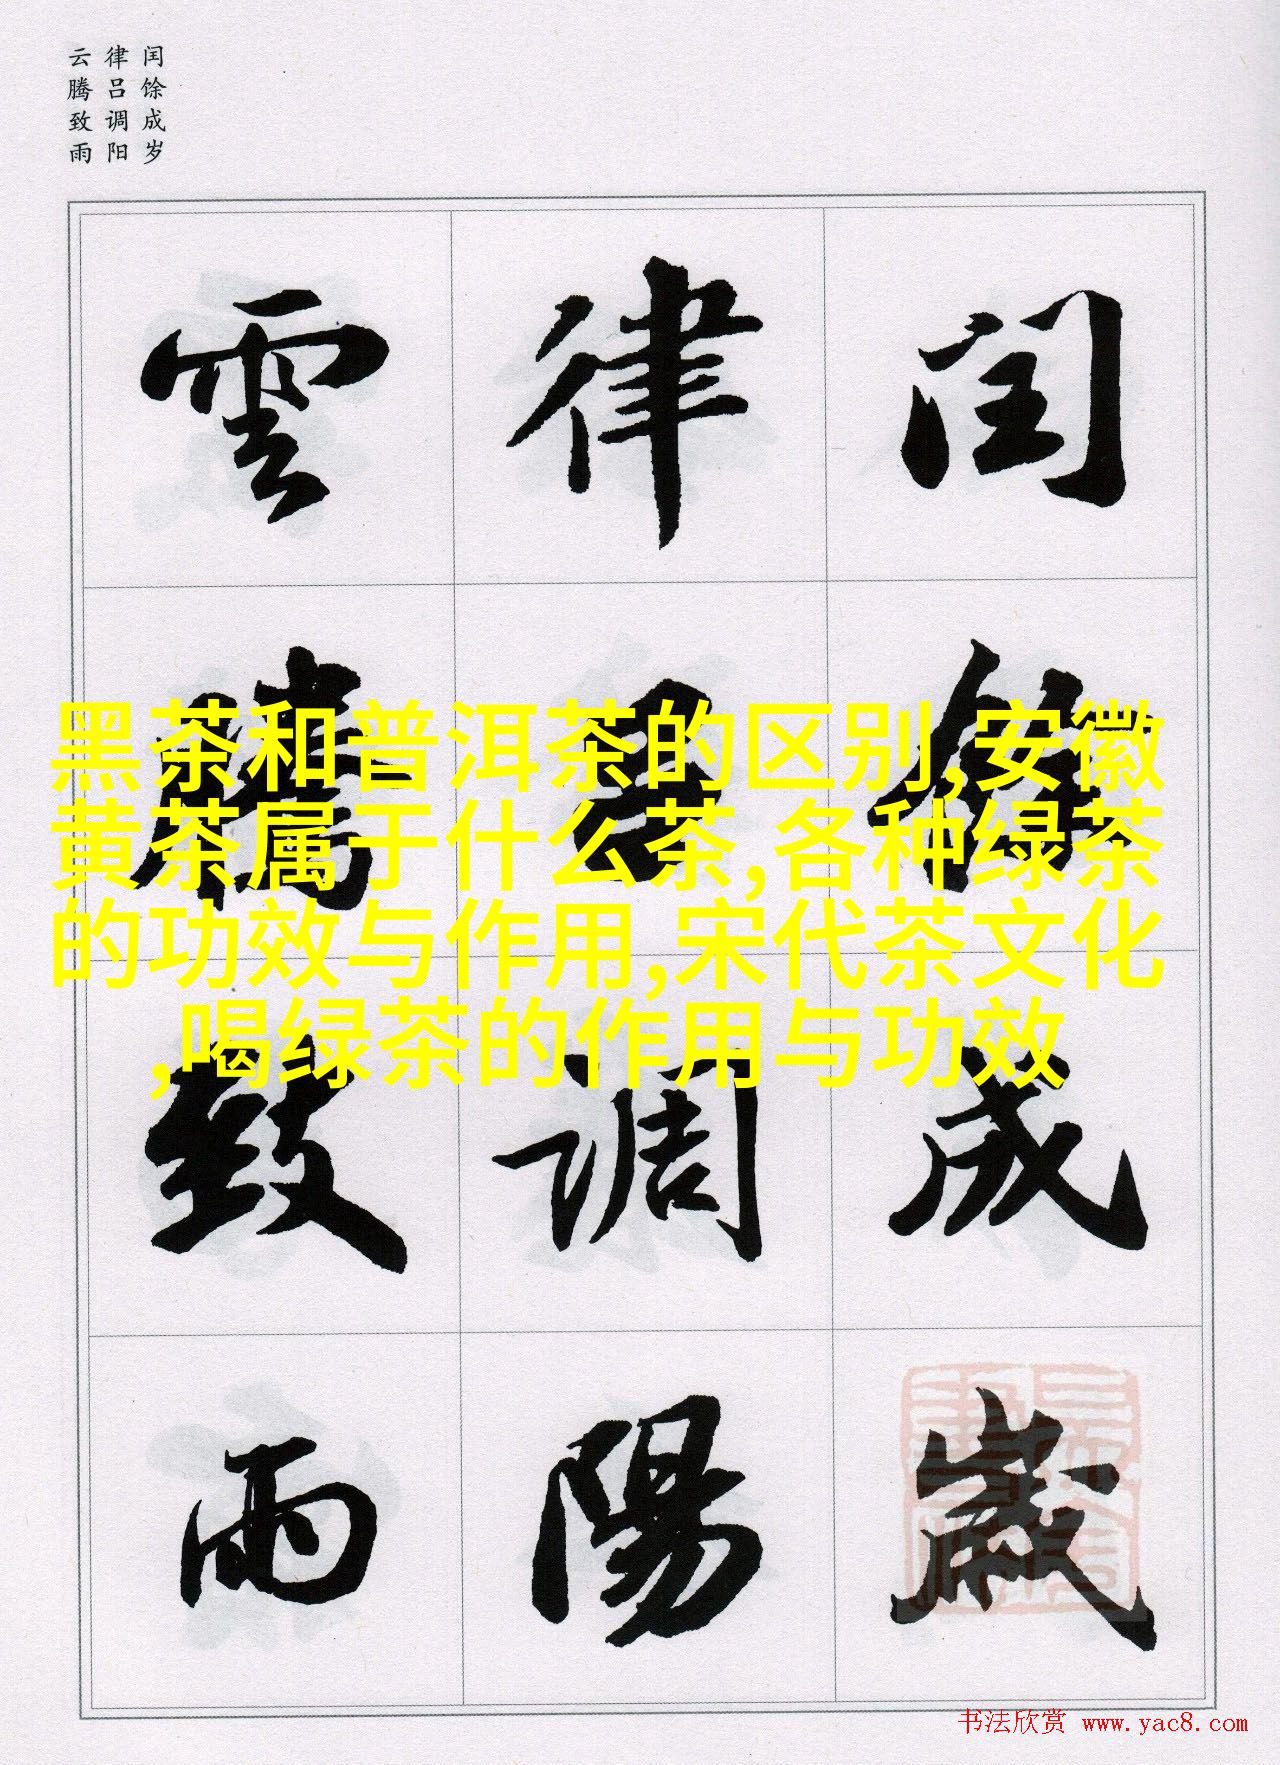 闰馀成岁
律吕调阳
云腾致雨
閏餘成歲
律吕調陽
雲騰致雨
黑茶和普洱茶的区别,安徽
黄茶属于什么茶,各种绿茶
的功效与作用,宋代茶文化
,喝绿茶的作用与功效
书法欣赏 www.yac8.com